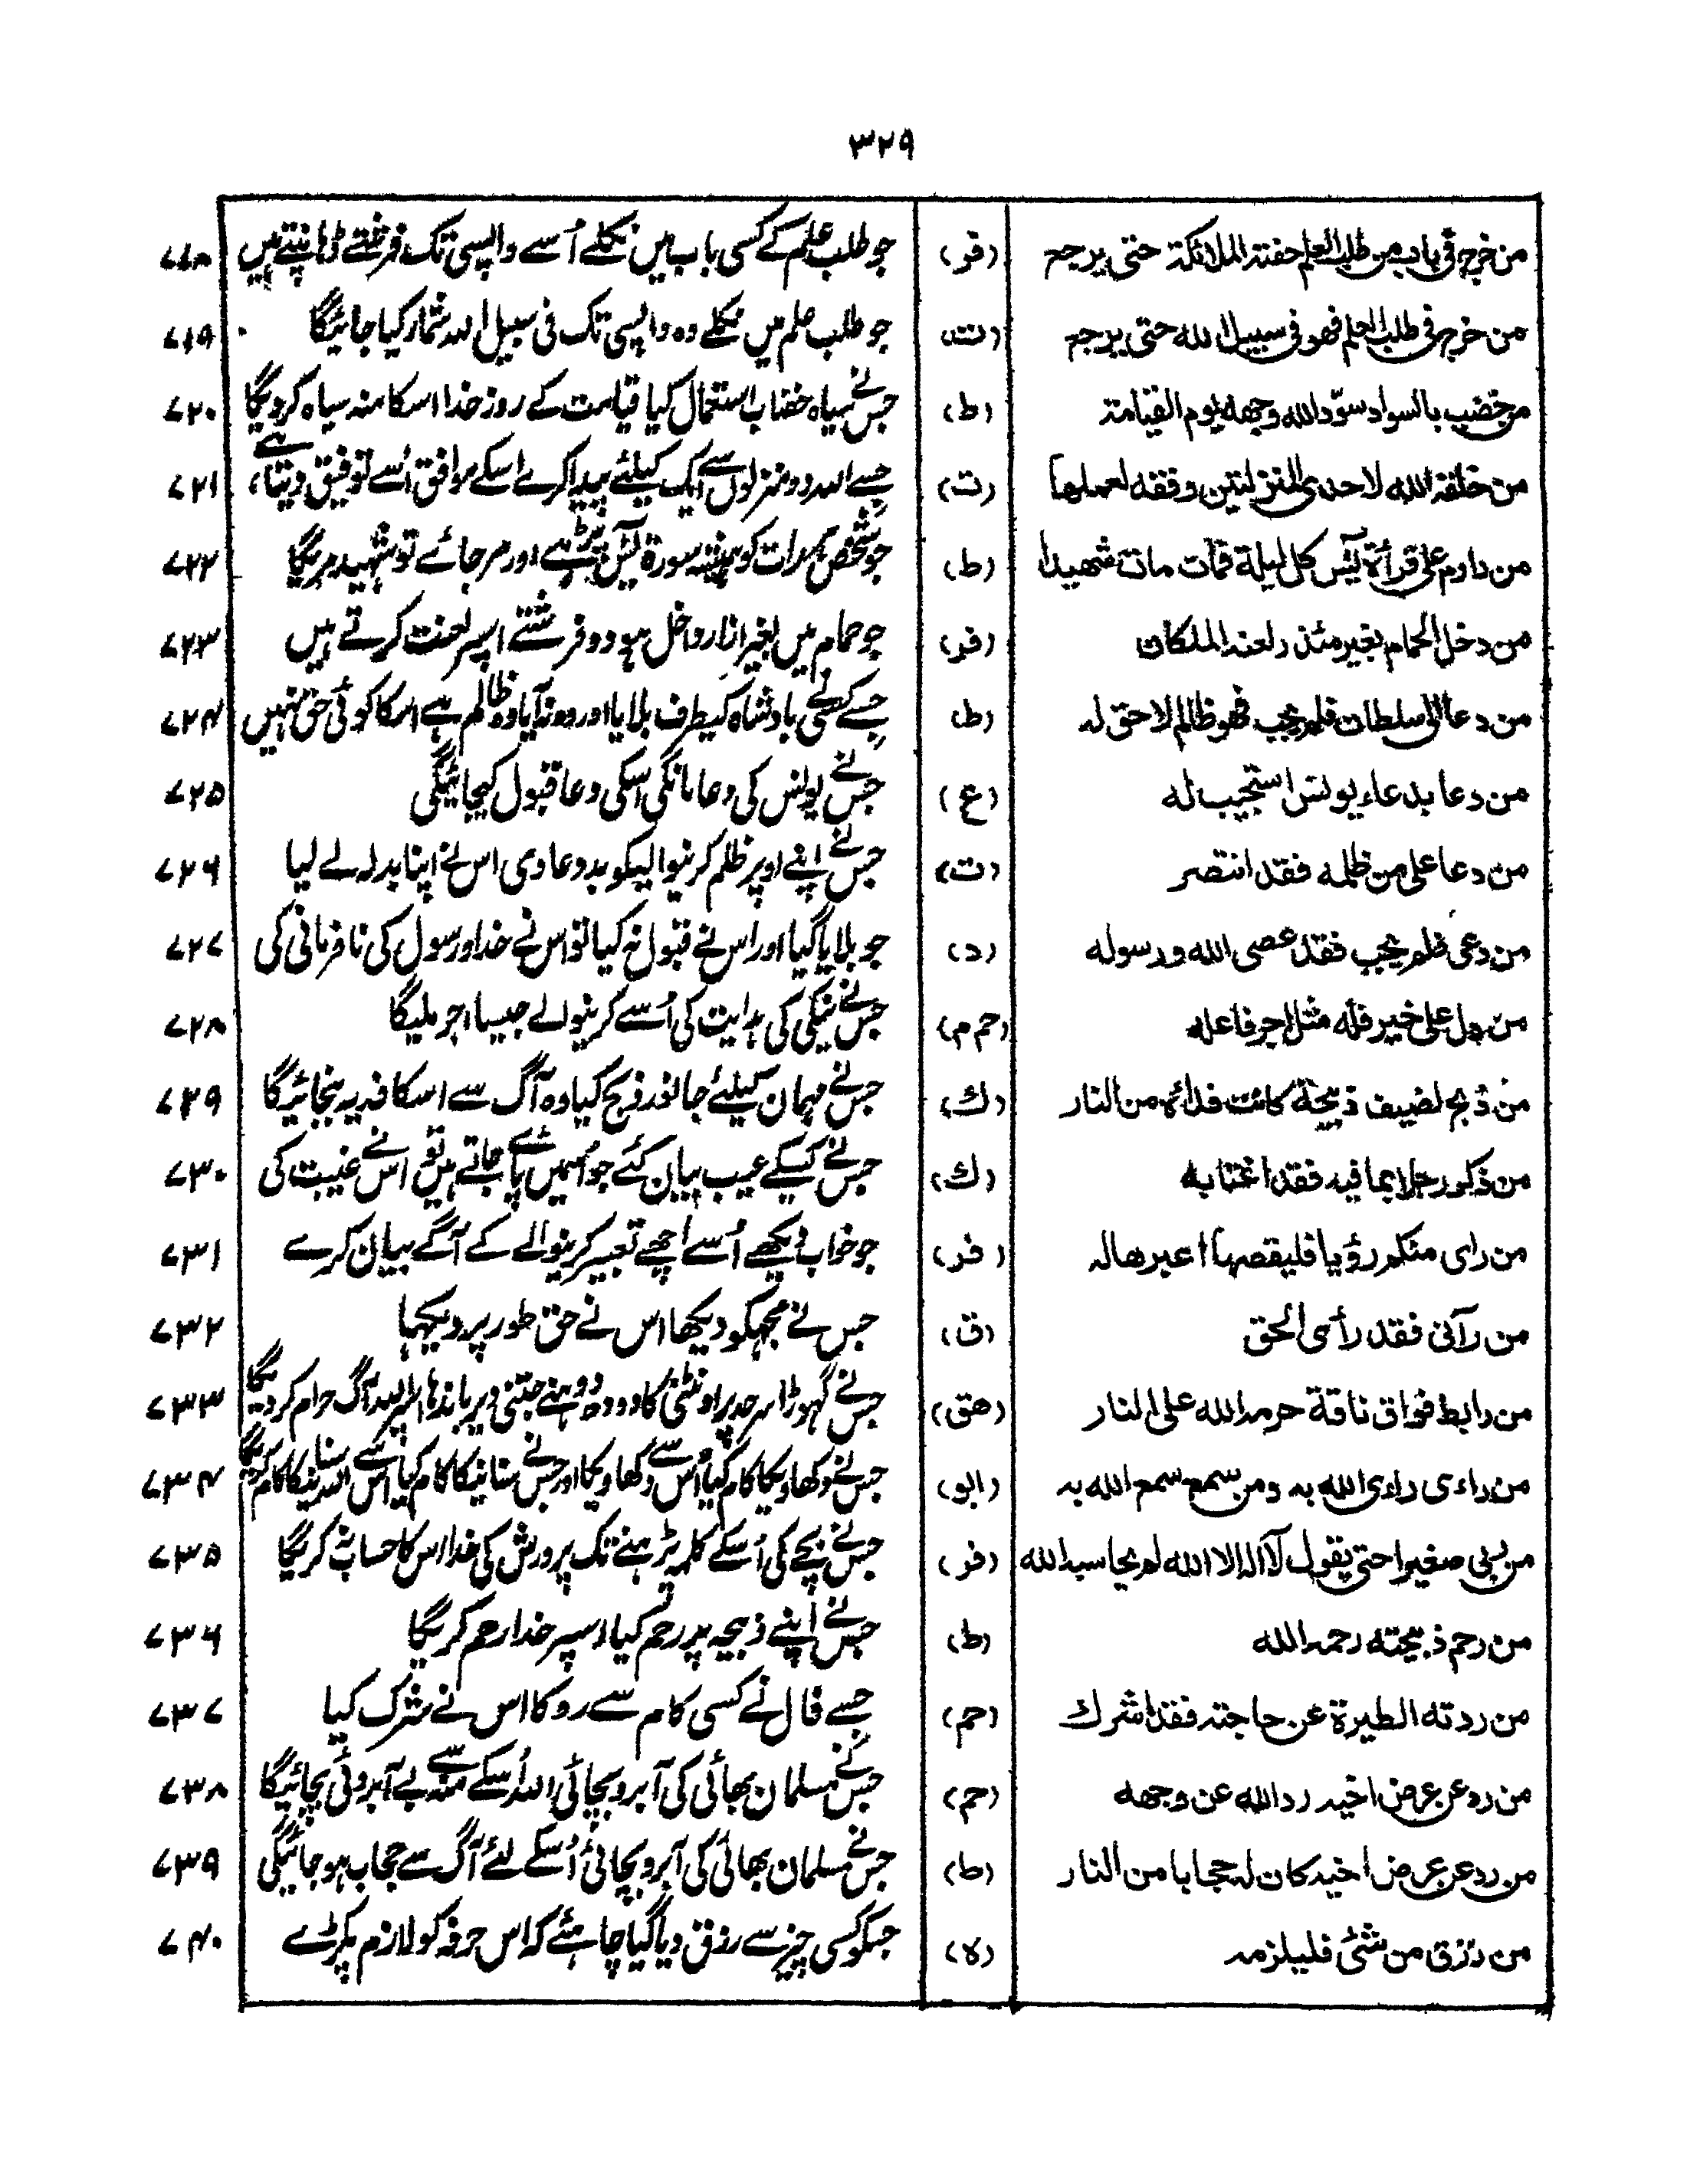 ۳۲۹
من خرج فی باب من طلب العلم حفته الملائكة حتی یرجع (فر) جو طلب علم کے کسی باب میں نکلے اُسے واپسی تک فرشتے ڈہانپتے ہیں ۷۱۸
من خرج فی طلب العلم فهو فی سبیل الله حتی یرجع (ت) جو طلب علم میں نکلے وہ واپسی تک فی سبیل اللہ شمار کیا جائیگا ۷۱۹
من خضب بالسواد سوّد الله وجهه یوم القیامة (ط) جس نے سیاہ خضاب استعمال کیا قیامت کے روز خدا اسکا منہ سیاہ کر دیگا ۷۲۰
من خلقه الله لاحدی المنزلتین وفقه لعملها (ت) جسے اللہ دو منزلوں سے ایک کیلئے پیدا کرے اسکے موافق اُسے توفیق دیتا ہے، ۷۲۱
من داوم علی قرأة یٰسٓ كل لیلة فمات مات شهیدا (ط) جو شخص ہمرات کو ہمیشہ سورۃ یٰسٓ پڑہے اور مر جائے تو شہید مریگا ۷۲۲
من دخل الحمام بغیر مئذر لعنه الملكان (فر) جو حمام میں بغیر ازار داخل ہو دو فرشتے اسپر لعنت کرتے ہیں ۷۲۳
من دعا الی سلطان فلم یجب فهو ظالم لا حق له (ط) جسے کسی نے بادشاہ کیطرف بلایا اور وہ نہ آیا وہ ظالم ہے اسکا کوئی حق نہیں ۷۲۴
من دعا بدعاء یونس استجیب له (ع) جس نے یونس کی دعا مانگی اسکی دعا قبول کیجائیگی ۷۲۵
من دعا علی من ظلمه فقد انتصر (ت) جس نے اپنے اوپر ظلم کرنیوالیکو بد دعا دی اس نے اپنا بدلہ لے لیا ۷۲۶
من دعی فلم یجب فقد عصی الله ورسوله (د) جو بلایا گیا اور اس نے قبول نہ کیا تو اس نے خدا و رسول کی نافرمانی کی ۷۲۷
من دل علی خیر فله مثل اجر فاعله (حم م) جس نے نیکی کی ہدایت کی اُسے کرنیوالے جیسا اجر ملیگا ۷۲۸
من ذبح لضیف ذبیحة كانت فدائه من النار (ك) جس نے مہمان کیلئے جانور ذبح کیا وہ آگ سے اسکا فدیہ بنجائیگا ۷۲۹
من ذكر رجلا بما فیه فقد اغتابه (ك) جس نے کسیکے عیب بیان کئے جو اُسمیں پائے جاتے ہیں تو اس نے غیبت کی ۷۳۰
من رای منكم رؤیا فلیقصها اعبرها له (فر) جو خواب دیکھے اُسے اچھے تعبیر کرنیوالے کے آگے بیان کرے ۷۳۱
من رآنی فقد رأی الحق (ق) جس نے مجہکو دیکھا اس نے حق طور پر دیکہا ۷۳۲
من رابط فواق ناقة حرمه الله علی النار (عق) جس نے گہوڑا سرحد پر اونٹنی کا دودھ دوہنے جتنی دیر باندہا اسپر اللہ آگ حرام کر دیگا ۷۳۳
من راءی راءی الله به ومن سمع سمع الله به (ابو) جس نے دکھاویکا کام کیا اُس سے دکھاویکا اور جس نے سنانیکا کام کیا اس سے اللہ سنانیکا کام کریگا ۷۳۴
من ربی صغیرا حتی یقول لآ اله الا الله لم یحاسبه الله (فر) جس نے بچے کی اُسکے کلمہ پڑہنے تک پرورش کی خدا اس کا حساب نہ کریگا ۷۳۵
من رحم ذبیحته رحمه الله (ط) جس نے اپنے ذبیحہ پر رحم کیا اسپر خدا رحم کریگا ۷۳۶
من ردته الطیرة عن حاجته فقد اشرك (حم) جسے فال نے کسی کام سے روکا اس نے شرک کیا ۷۳۷
من رد عن عرض اخیه رد الله عن وجهه (حم) جس نے مسلمان بھائی کی آبرو بچائی اللہ اُسکے منہ سے بے آبروئی بچائیگا ۷۳۸
من رد عن عرض اخیه كان له حجابا من النار (ط) جس نے مسلمان بھائی کی آبرو بچائی اُسکے لئے آگ سے حجاب ہو جائیگی ۷۳۹
من رزق من شئ فلیلزمه (ه) جسکو کسی چیز سے رزق دیا گیا چاہئے کہ اس حرفہ کو لازم پکڑے ۷۴۰